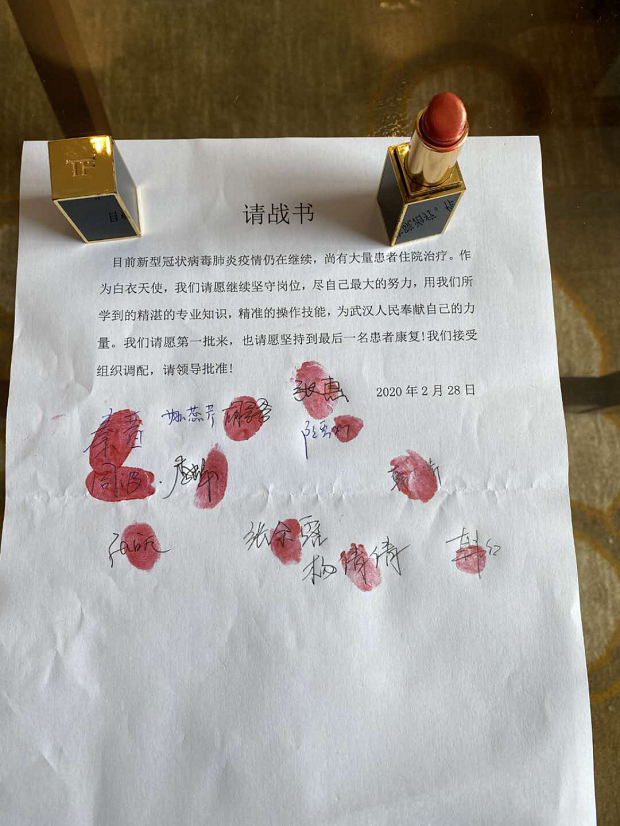 TF
请战书
目前新型冠状病毒肺炎疫情仍在继续，尚有大量患者住院治疗。作
为白衣天使，我们请愿继续坚守岗位，尽自己最大的努力，用我们所
学到的精湛的专业知识，精准的操作技能，为武汉人民奉献自己的力
量。我们请愿第一批来，也请愿坚持到最后一名患者康复!我们接受
组织调配，请领导批准!
2020 年 2 月 28 日
张惠
秦茜
孙燕芹
周波
杨倩倩